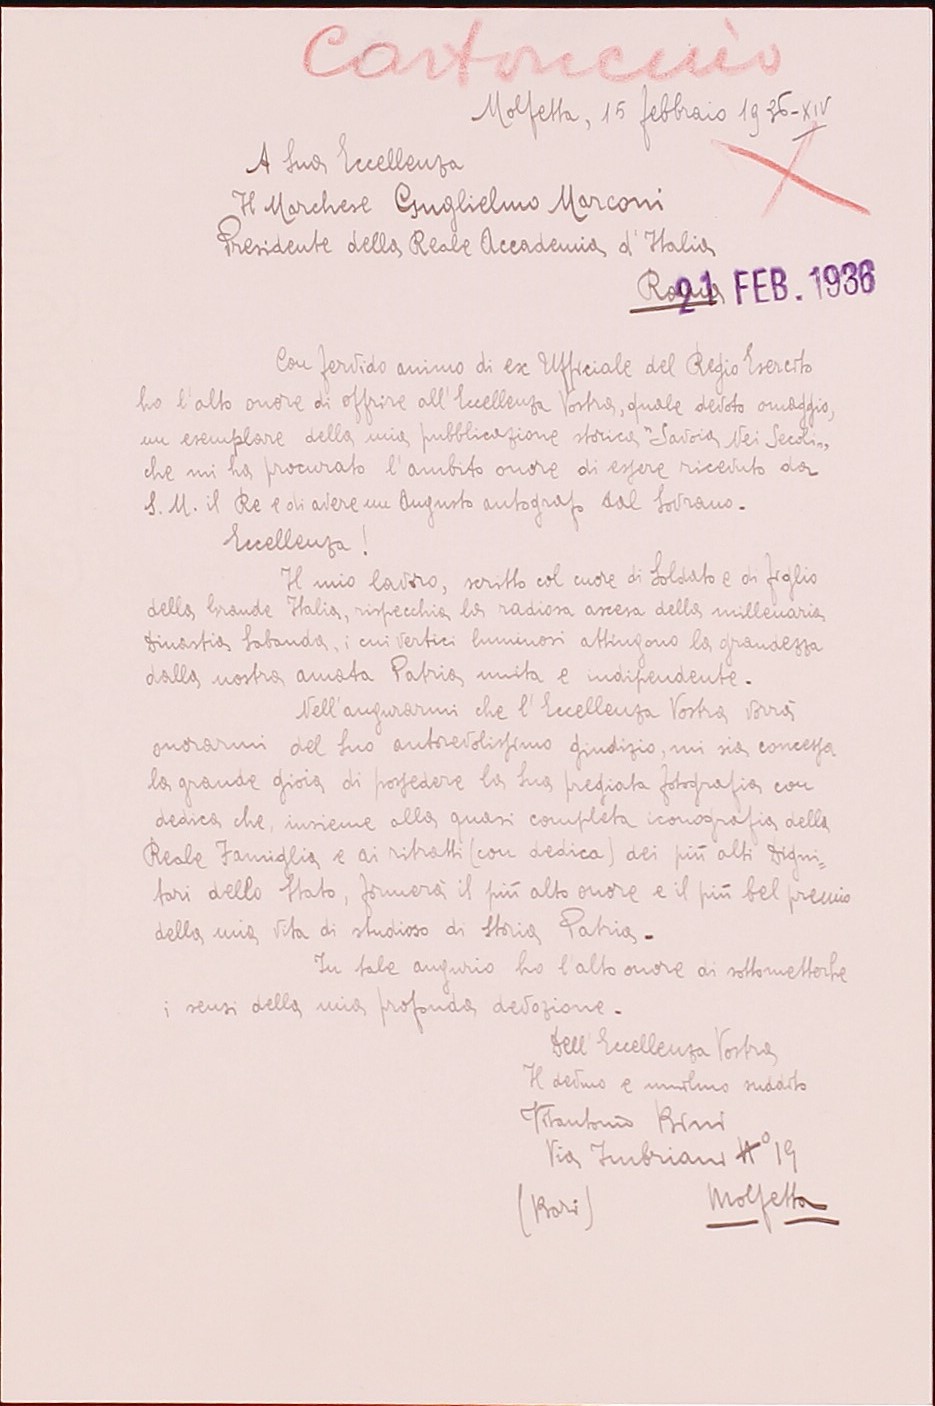 Cartoncino
Molfetta, 15 febbraio 1936-XIV
A Sua Eccellenza
Il Marchese Guglielmo Marconi
Presidente della Reale Accademia d'Italia
Roma
21 FEB. 1936
Con fervido animo di ex Ufficiale del Regio Esercito
ho l'alto onore di offrire all'Eccellenza Vostra, quale devoto omaggio,
un esemplare della mia pubblicazione storica "Savoia Nei Secoli",
che mi ha procurato l'ambito onore di essere ricevuto da
S. M. il Re e di avere un Augusto autografo dal Sovrano.
Eccellenza!
Il mio lavoro, scritto col cuore di Soldato e di figlio
della Grande Italia, rispecchia la radiosa ascesa della millenaria
Dinastia Sabauda, i cui vertici luminosi attingono la grandezza
dalla nostra amata Patria unita e indipendente.
Nell'augurarmi che l'Eccellenza Vostra vorrà
onorarmi del Suo autorevolissimo giudizio, mi sia concessa
la grande gioia di possedere la Sua pregiata fotografia con
dedica che, insieme alla quasi completa iconografia della
Reale Famiglia e ai ritratti (con dedica) dei più alti Digni=
tari dello Stato, formerà il più alto onore e il più bel premio
della mia vita di studioso di Storia Patria.
In tale augurio ho l'alto onore di sottometterLe
i sensi della mia profonda devozione.
Dell'Eccellenza Vostra
Il dev.mo e umil.mo suddito
Vitantonio Bini
Via Imbriani N° 19
(Bari) Molfetta